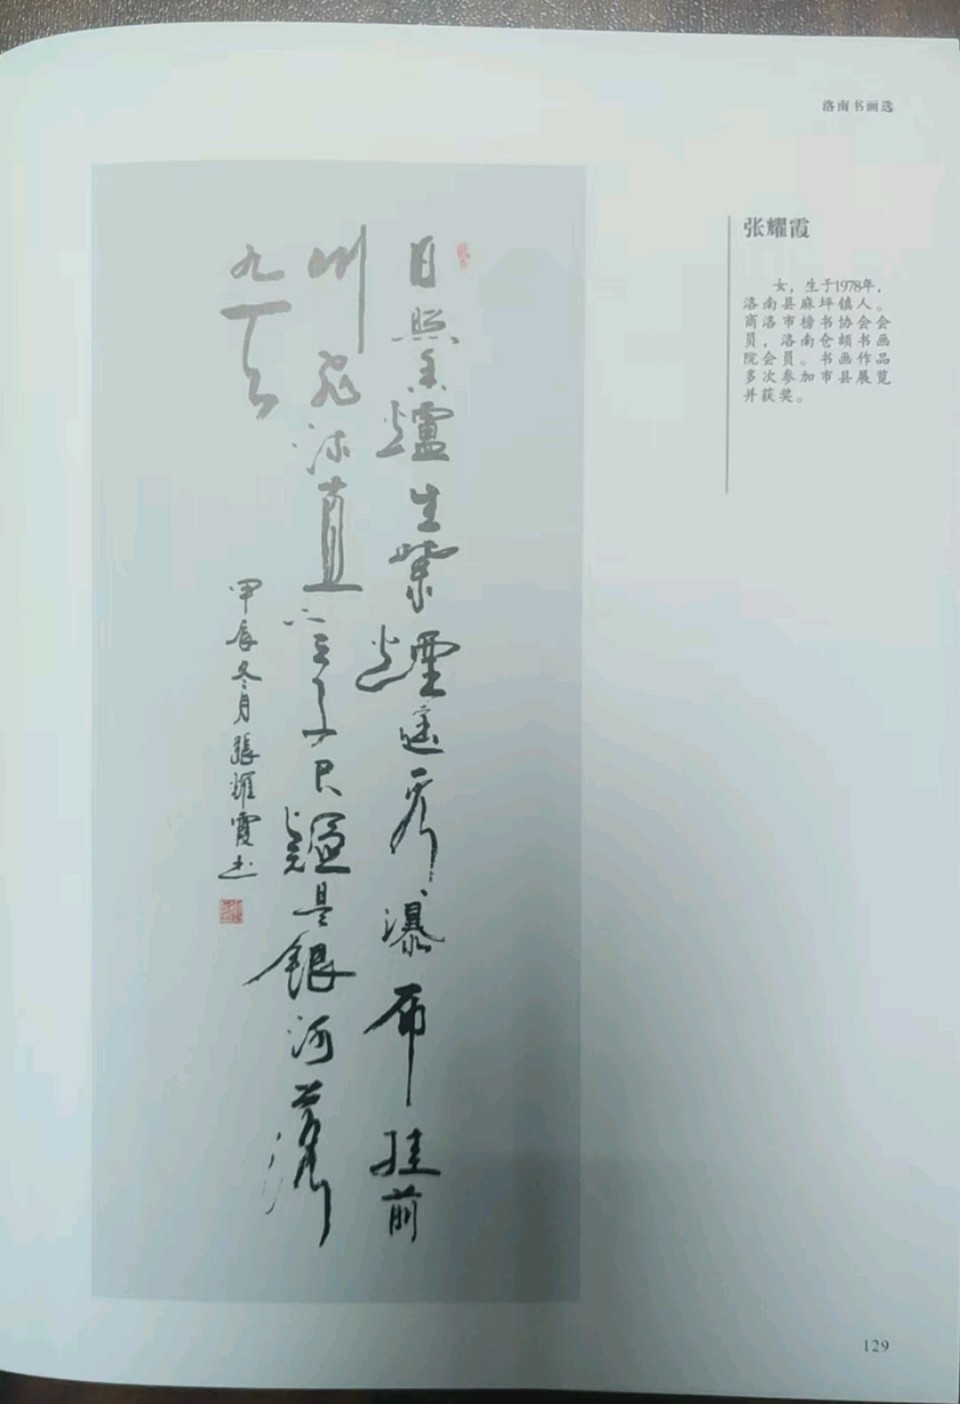 洛南书画选
张耀霞
女，生于1978年，
洛南县麻坪镇人。
商洛市榜书协会会
员，洛南仓颉书画
院会员。书画作品
多次参加市县展览
并获奖。
日照香爐生紫煙遥看瀑布挂前
川飛流直下三千尺疑是銀河落
九天
甲辰冬月張耀霞书
129